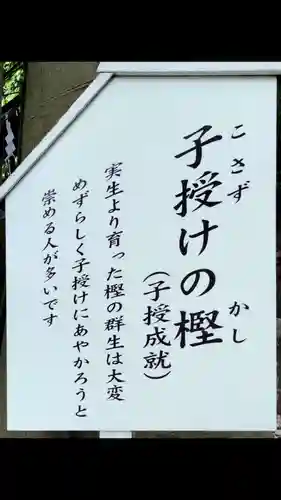 こさず かし
子授けの樫
(子授成就)
実生より育った樫の群生は大変
めずらしく子授けにあやかろうと
崇める人が多いです